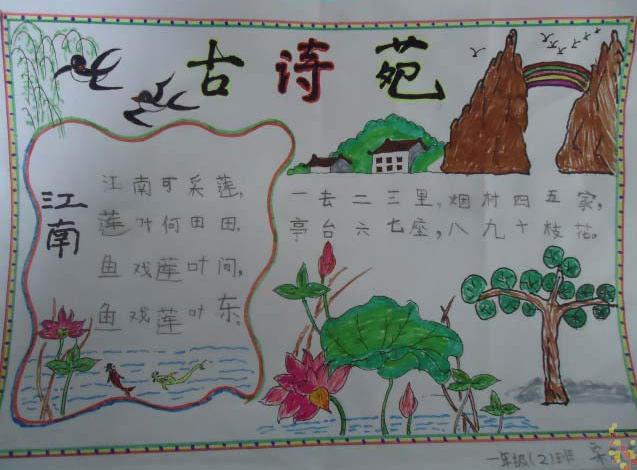 古诗苑
江南
江南可采莲,
莲叶何田田.
鱼戏莲叶间,
鱼戏莲叶东.
一去二三里,烟村四五家,
亭台六七座,八九十枝花.
一年级(2)班